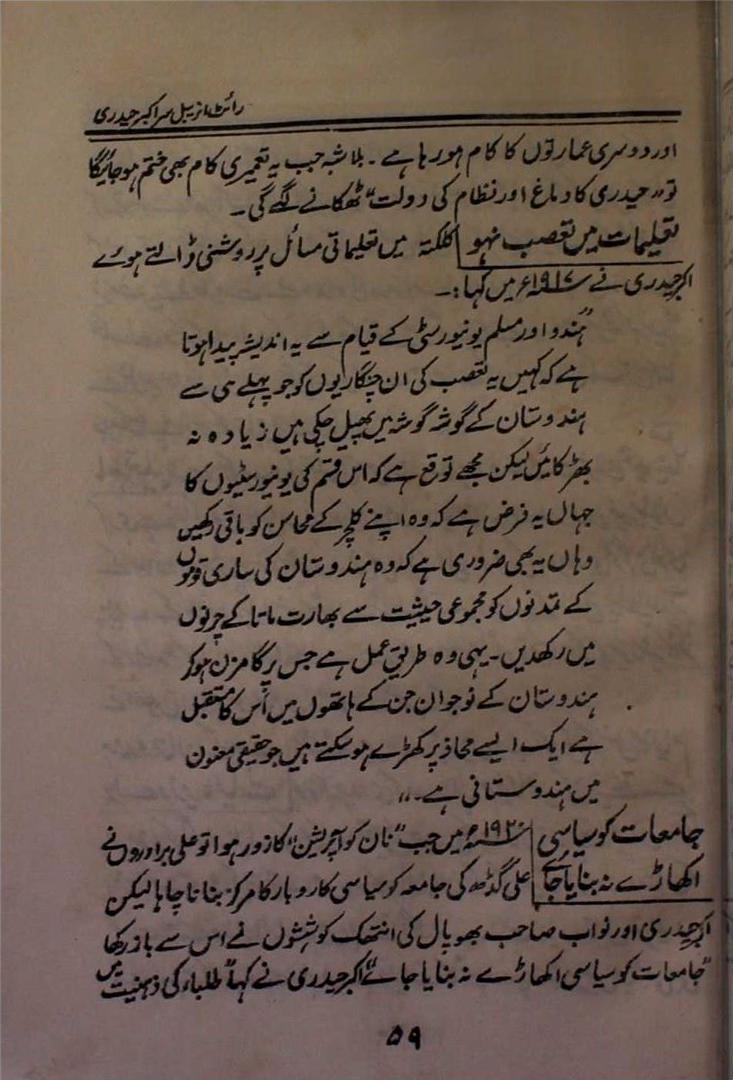 رائٹ آنریبل سر اکبر حیدری
اور دوسری عمارتوں کا کام ہو رہا ہے۔ بلا شبہ جب یہ تعمیری کام بھی ختم ہو جائیگا
تو "حیدری کا دماغ اور نظام کی دولت" ٹھکانے لگے گی۔
تعلیمات میں تعصب نہو
کلکتہ میں تعلیماتی مسائل پر روشنی ڈالتے ہوئے
اکبر حیدری نے ۱۹۱۷ء میں کہا:۔
"ہندو اور مسلم یونیورسٹی کے قیام سے یہ اندیشہ پیدا ہوتا
ہے کہ کہیں یہ تعصب کی ان چنگاریوں کو جو پہلے ہی سے
ہندوستان کے گوشہ گوشہ میں پھیل چکی ہیں زیادہ نہ
بھڑکائیں لیکن مجھے توقع ہے کہ اس قسم کی یونیورسٹیوں کا
جہاں یہ فرض ہے کہ وہ اپنے کلچر کے محاسن کو باقی رکھیں
وہاں یہ بھی ضروری ہے کہ وہ ہندوستان کی ساری قوموں
کے تمدنوں کو مجموعی حیثیت سے بھارت ماتا کے چرنوں
میں رکھدیں۔ یہی وہ طریق عمل ہے جس پر گامزن ہو کر
ہندوستان کے نوجوان جن کے ہاتھوں میں اُس کا مستقبل
ہے ایک ایسے محاذ پر کھڑے ہو سکتے ہیں جو حقیقی معنون
میں ہندوستانی ہے۔"
جامعات کو سیاسی اکھاڑے نہ بنایا جائے
۱۹۲۰ء میں جب "نان کو آپریشن" کا زور ہوا تو علی برادروں نے
علی گڈھ کی جامعہ کو سیاسی کاروبار کا مرکز بنانا چاہا لیکن
اکبر حیدری اور نواب صاحب بھوپال کی انتھک کوششوں نے اس سے باز رکھا
"جامعات کو سیاسی اکھاڑے نہ بنایا جائے" اکبر حیدری نے کہا "طلباء کی ذہنیت میں
۵۹